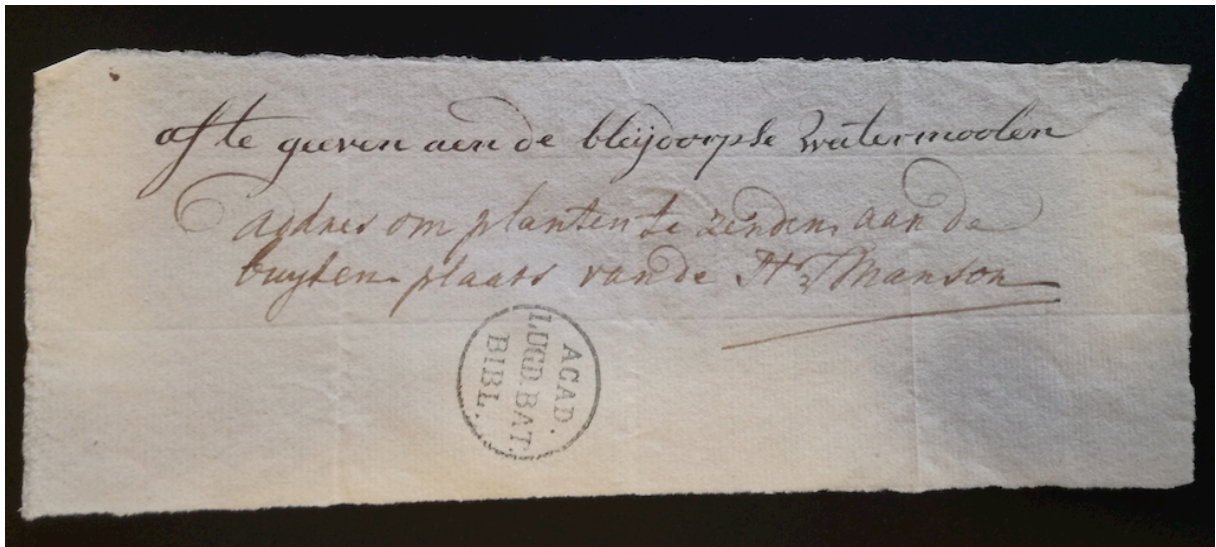 af te geeven aen de bleijdorpse watermoolen
addres om planten te zenden aan de
buyten plaats van de Hr Manson
ACAD.
LUGD. BAT.
BIBL.